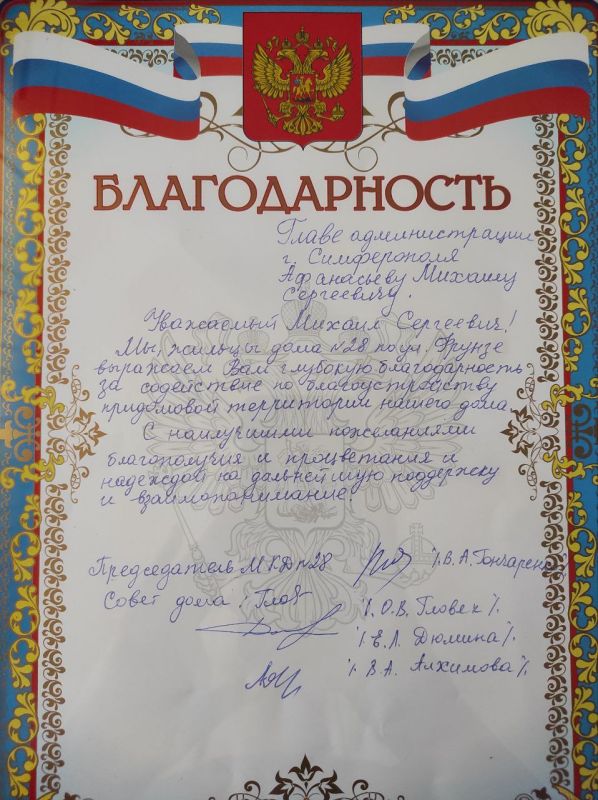 БЛАГОДАРНОСТЬ
Главе администрации
г. Симферополя
Афанасьеву Михаилу
Сергеевичу.
Уважаемый Михаил Сергеевич!
Мы, жильцы дома №28 по ул Фрунзе
выражаем Вам глубокую благодарность
за содействие по благоустройству
придомовой территории нашего дома
С наилучшими пожеланиями
благополучия и процветания и
надеждой на дальнейшую поддержку
и взаимопонимание.
Председатель МКД №28 /.В.А. Гончарен
Совет дома: /.О.В. Гловек/.
/.Е.Л. Дюмина/.
/.В.А. Алхимова/.